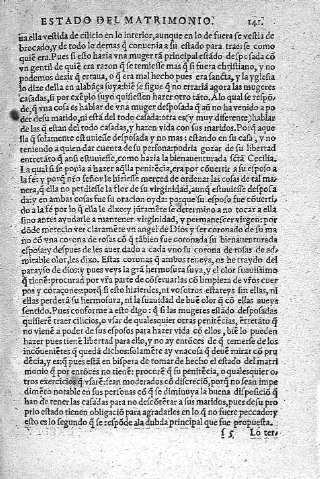 ESTADO DEL MATRIMONIO. 141.
ua ella vestida de cilicio en lo interior, aunque en lo de fuera se vestia de
brocado, y de todo lo demas q̃ conuenia a su estado para traerse como
quiẽ era. Pues si esto hazia vna muger tã principal estãdo desposada cõ
vn gentil de quiẽ era razon q̃ se temiesse mas q̃ si fuera christiano, y no
podemos dezir q̃ erraua, o q̃ era mal hecho pues era sancta, y la yglesia
lo dize della en alabãça suya: biẽ se sigue q̃ no errariã agora las mugeres
casadas, si por exẽplo suyo quisiessen hazer otro tãto. A lo qual se respõ-
de, q̃ vna cosa es hablar de vna muger desposada q̃ aũ no ha venido a po
der de su marido, ni està del todo casada: otra es (y muy diferẽte) hablar
de las q̃ estan del todo casadas, y hazen vida con sus maridos. Porq̃ aque
lla q̃ solamente estuuiesse desposada y no mas: estando en su casa, y no
teniendo a quien dar cuenta de su persona: podria gozar de su libertad
entretãto q̃ ansi estuuiesse, como hazia la bienauenturada sctã Cecilia.
La qual si se ponia a hazer aq̃lla penitẽcia, era por cõuertir a su esposo a
la fè: y porq̃ nrõ señor le hiziesse merced de ordenar las cosas de tal ma-
nera, q̃ ella no perdiesse la flor de su virginidad, aunq̃ estuuiesse desposa
da: y en ambas cosas fue su oracion oyda: porque su esposo fue cõuerti-
do a la fè por lo q̃ ella le dixo: y juntamẽte se determino a no tocar a ella
sino antes ayudarle a mantener virginidad, y permanescer virgen: por
dõde merecio ver claramẽte vn angel de Dios y ser coronado de su ma
no cõ vna corona de rosas cõ q̃ tãbien fue coronada su bienauenturada
esposa: y despues de les auer dado a cada vno su corona de rosas de ad-
mirable olor, les dixo. Estas coronas q̃ ambos teneys, os he traydo del
parayso de dios: y pues veys la grã hermosura suya, y el olor suauissimo
q̃ tienẽ: procurad por vrã parte de conseruarlas cõ limpieza de vrõs cuer
pos y coraçones: porq̃ si esto hizierdes, ni vosotros estareys sin ellas, ni
ellas perderã su hermosura, ni la suauidad de buẽ olor q̃ cõ ellas aueys
sentido. Pues conforme a esto digo: q̃ si las mugeres estãdo desposadas
quisierẽ traer cilicios, o vsar de qualesquier otras penitẽcias, ẽtretãto q̃
no vienẽ a poder de sus esposos para hazer vida cõ ellos, biẽ lo pueden
hazer pues tienẽ libertad para ello, y no ay entõces de q̃ temerse de los
incõuenientes q̃ queda dichos: solamẽte ay vna cosa q̃ deuẽ mirar cõ pru
dẽcia, y es q̃ pues està en bispera de tomar de hecho el estado del matri
monio q̃ por entõces no tienẽ: procurẽ q̃ su penitẽcia, o qualesquier o-
tros exercicios q̃ vsarẽ: sean moderados cõ discreciõ, porq̃ no sean impe
dimẽto notable en sus personas cõ q̃ se diminuya la buena disposiciõ q̃
han de tener las casadas para no descõtẽtar a sus maridos, pues de su pro
prio estado tienen obligaciõ para agradarles en lo q̃ no fuere peccado: y
esto es lo segundo q̃ se respõde a la dubda principal que fue propuesta.
S 5 Lo ter-